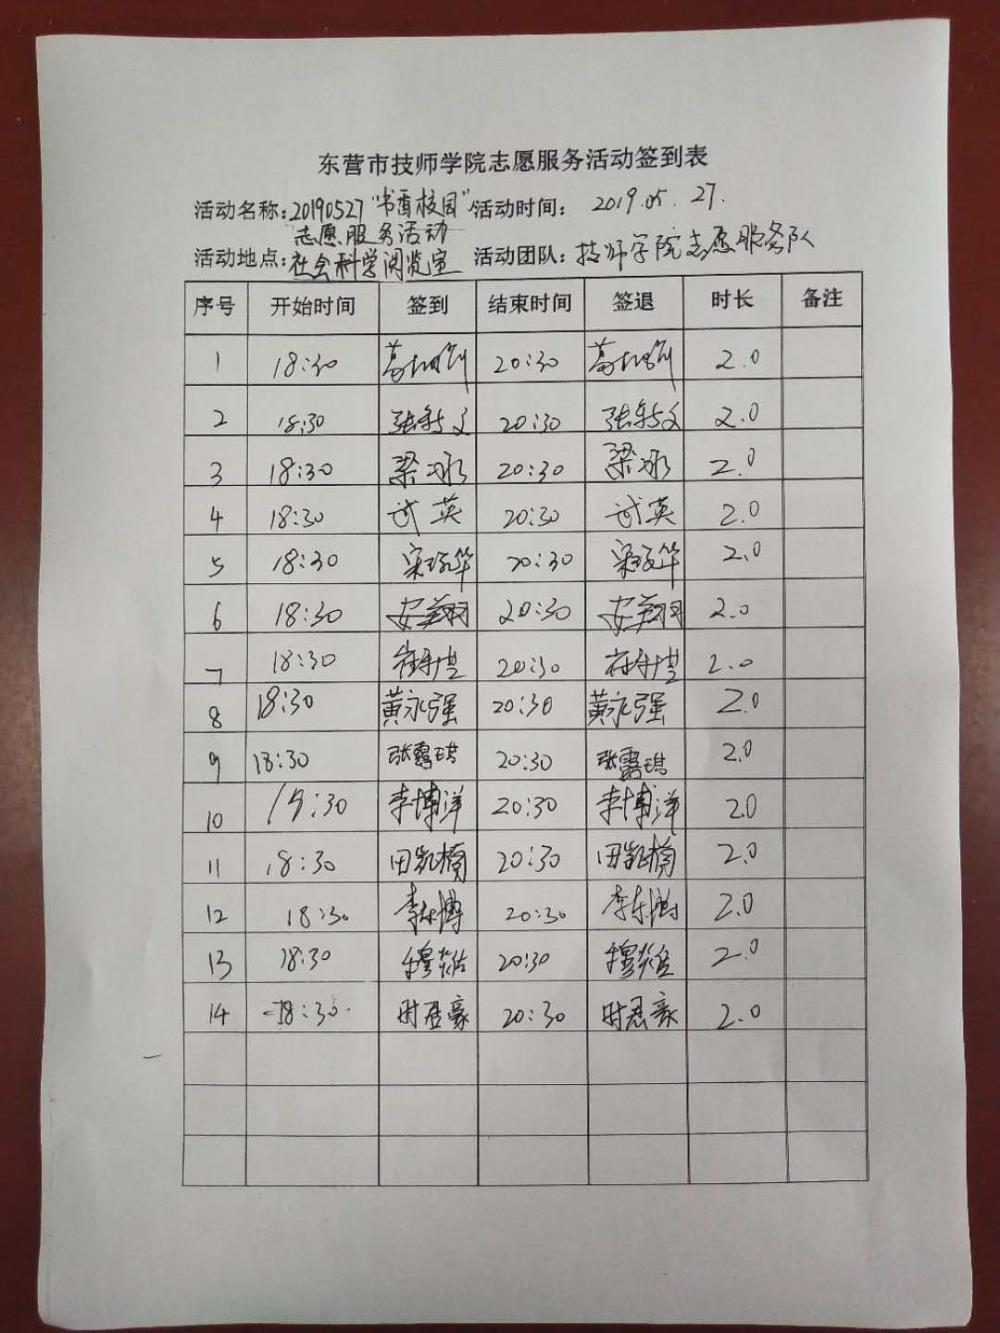 东营市技师学院志愿服务活动签到表
活动名称：20190527"书香校园" 活动时间： 2019.05.27.
志愿服务活动
活动地点：社会科学阅览室 活动团队：技师学院志愿服务队
序号 开始时间 签到 结束时间 签退 时长 备注
1 18:30 20:30 2.0
2 18:30 20:30 2.0
3 18:30 梁冰 20:30 梁冰 2.0
4 18:30 武英 20:30 武英 2.0
5 18:30 20:30 2.0
6 18:30 安翔羽 20:30 安翔羽 2.0
7 18:30 20:30 2.0
8 18:30 黄永强 20:30 黄永强 2.0
9 18:30 张露琪 20:30 张露琪 2.0
10 18:30 李博洋 20:30 李博洋 2.0
11 18:30 田凯楠 20:30 田凯楠 2.0
12 18:30 李东博 20:30 李东博 2.0
13 18:30 20:30 2.0
14 18:30 时君豪 20:30 时君豪 2.0